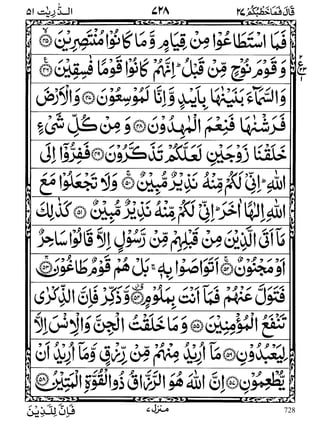 قَالَ فَمَا خَطْبُكُمْ ٢٧ ٧٢٨ الذّٰرِيٰت ٥١
فَمَا اسْتَطَاعُوْا مِنْ قِيَامٍ وَّمَا كَانُوْا مُنْتَصِرِيْنَ ﴿٤٥﴾
وَ قَوْمَ نُوْحٍ مِّنْ قَبْلُ ؕ اِنَّهُمْ كَانُوْا قَوْمًا فٰسِقِيْنَ ﴿٤٦﴾
وَالسَّمَآءَ بَنَيْنٰهَا بِاَيْىدٍ وَّ اِنَّا لَمُوْسِعُوْنَ ﴿٤٧﴾ وَالْاَرْضَ
فَرَشْنٰهَا فَنِعْمَ الْمٰهِدُوْنَ ﴿٤٨﴾ وَ مِنْ كُلِّ شَىْءٍ
خَلَقْنَا زَوْجَيْنِ لَعَلَّكُمْ تَذَكَّرُوْنَ ﴿٤٩﴾ فَفِرُّوْۤا اِلَى
اللّٰهِ ؕ اِنِّىْ لَكُمْ مِّنْهُ نَذِيْرٌ مُّبِيْنٌ ﴿٥٠﴾ وَلَا تَجْعَلُوْا مَعَ
اللّٰهِ اِلٰهًا اٰخَرَ ؕ اِنِّىْ لَكُمْ مِّنْهُ نَذِيْرٌ مُّبِيْنٌ ﴿٥١﴾ كَذٰلِكَ
مَاۤ اَتَى الَّذِيْنَ مِنْ قَبْلِهِمْ مِّنْ رَّسُوْلٍ اِلَّا قَالُوْا سَاحِرٌ
اَوْ مَجْنُوْنٌ ﴿٥٢﴾ اَتَوَاصَوْا بِهٖ ۚ بَلْ هُمْ قَوْمٌ طَاغُوْنَ ﴿٥٣﴾
فَتَوَلَّ عَنْهُمْ فَمَاۤ اَنْتَ بِمَلُوْمٍ ﴿٥٤﴾ وَّ ذَكِّرْ فَاِنَّ الذِّكْرٰى
تَنْفَعُ الْمُؤْمِنِيْنَ ﴿٥٥﴾ وَمَا خَلَقْتُ الْجِنَّ وَالْاِنْسَ اِلَّا
لِيَعْبُدُوْنِ ﴿٥٦﴾ مَاۤ اُرِيْدُ مِنْهُمْ مِّنْ رِّزْقٍ وَّمَاۤ اُرِيْدُ اَنْ
يُّطْعِمُوْنِ ﴿٥٧﴾ اِنَّ اللّٰهَ هُوَ الرَّزَّاقُ ذُو الْقُوَّةِ الْمَتِيْنُ ﴿٥٨﴾
فَاِنَّ لِلَّذِيْنَ منزل ٧ 728